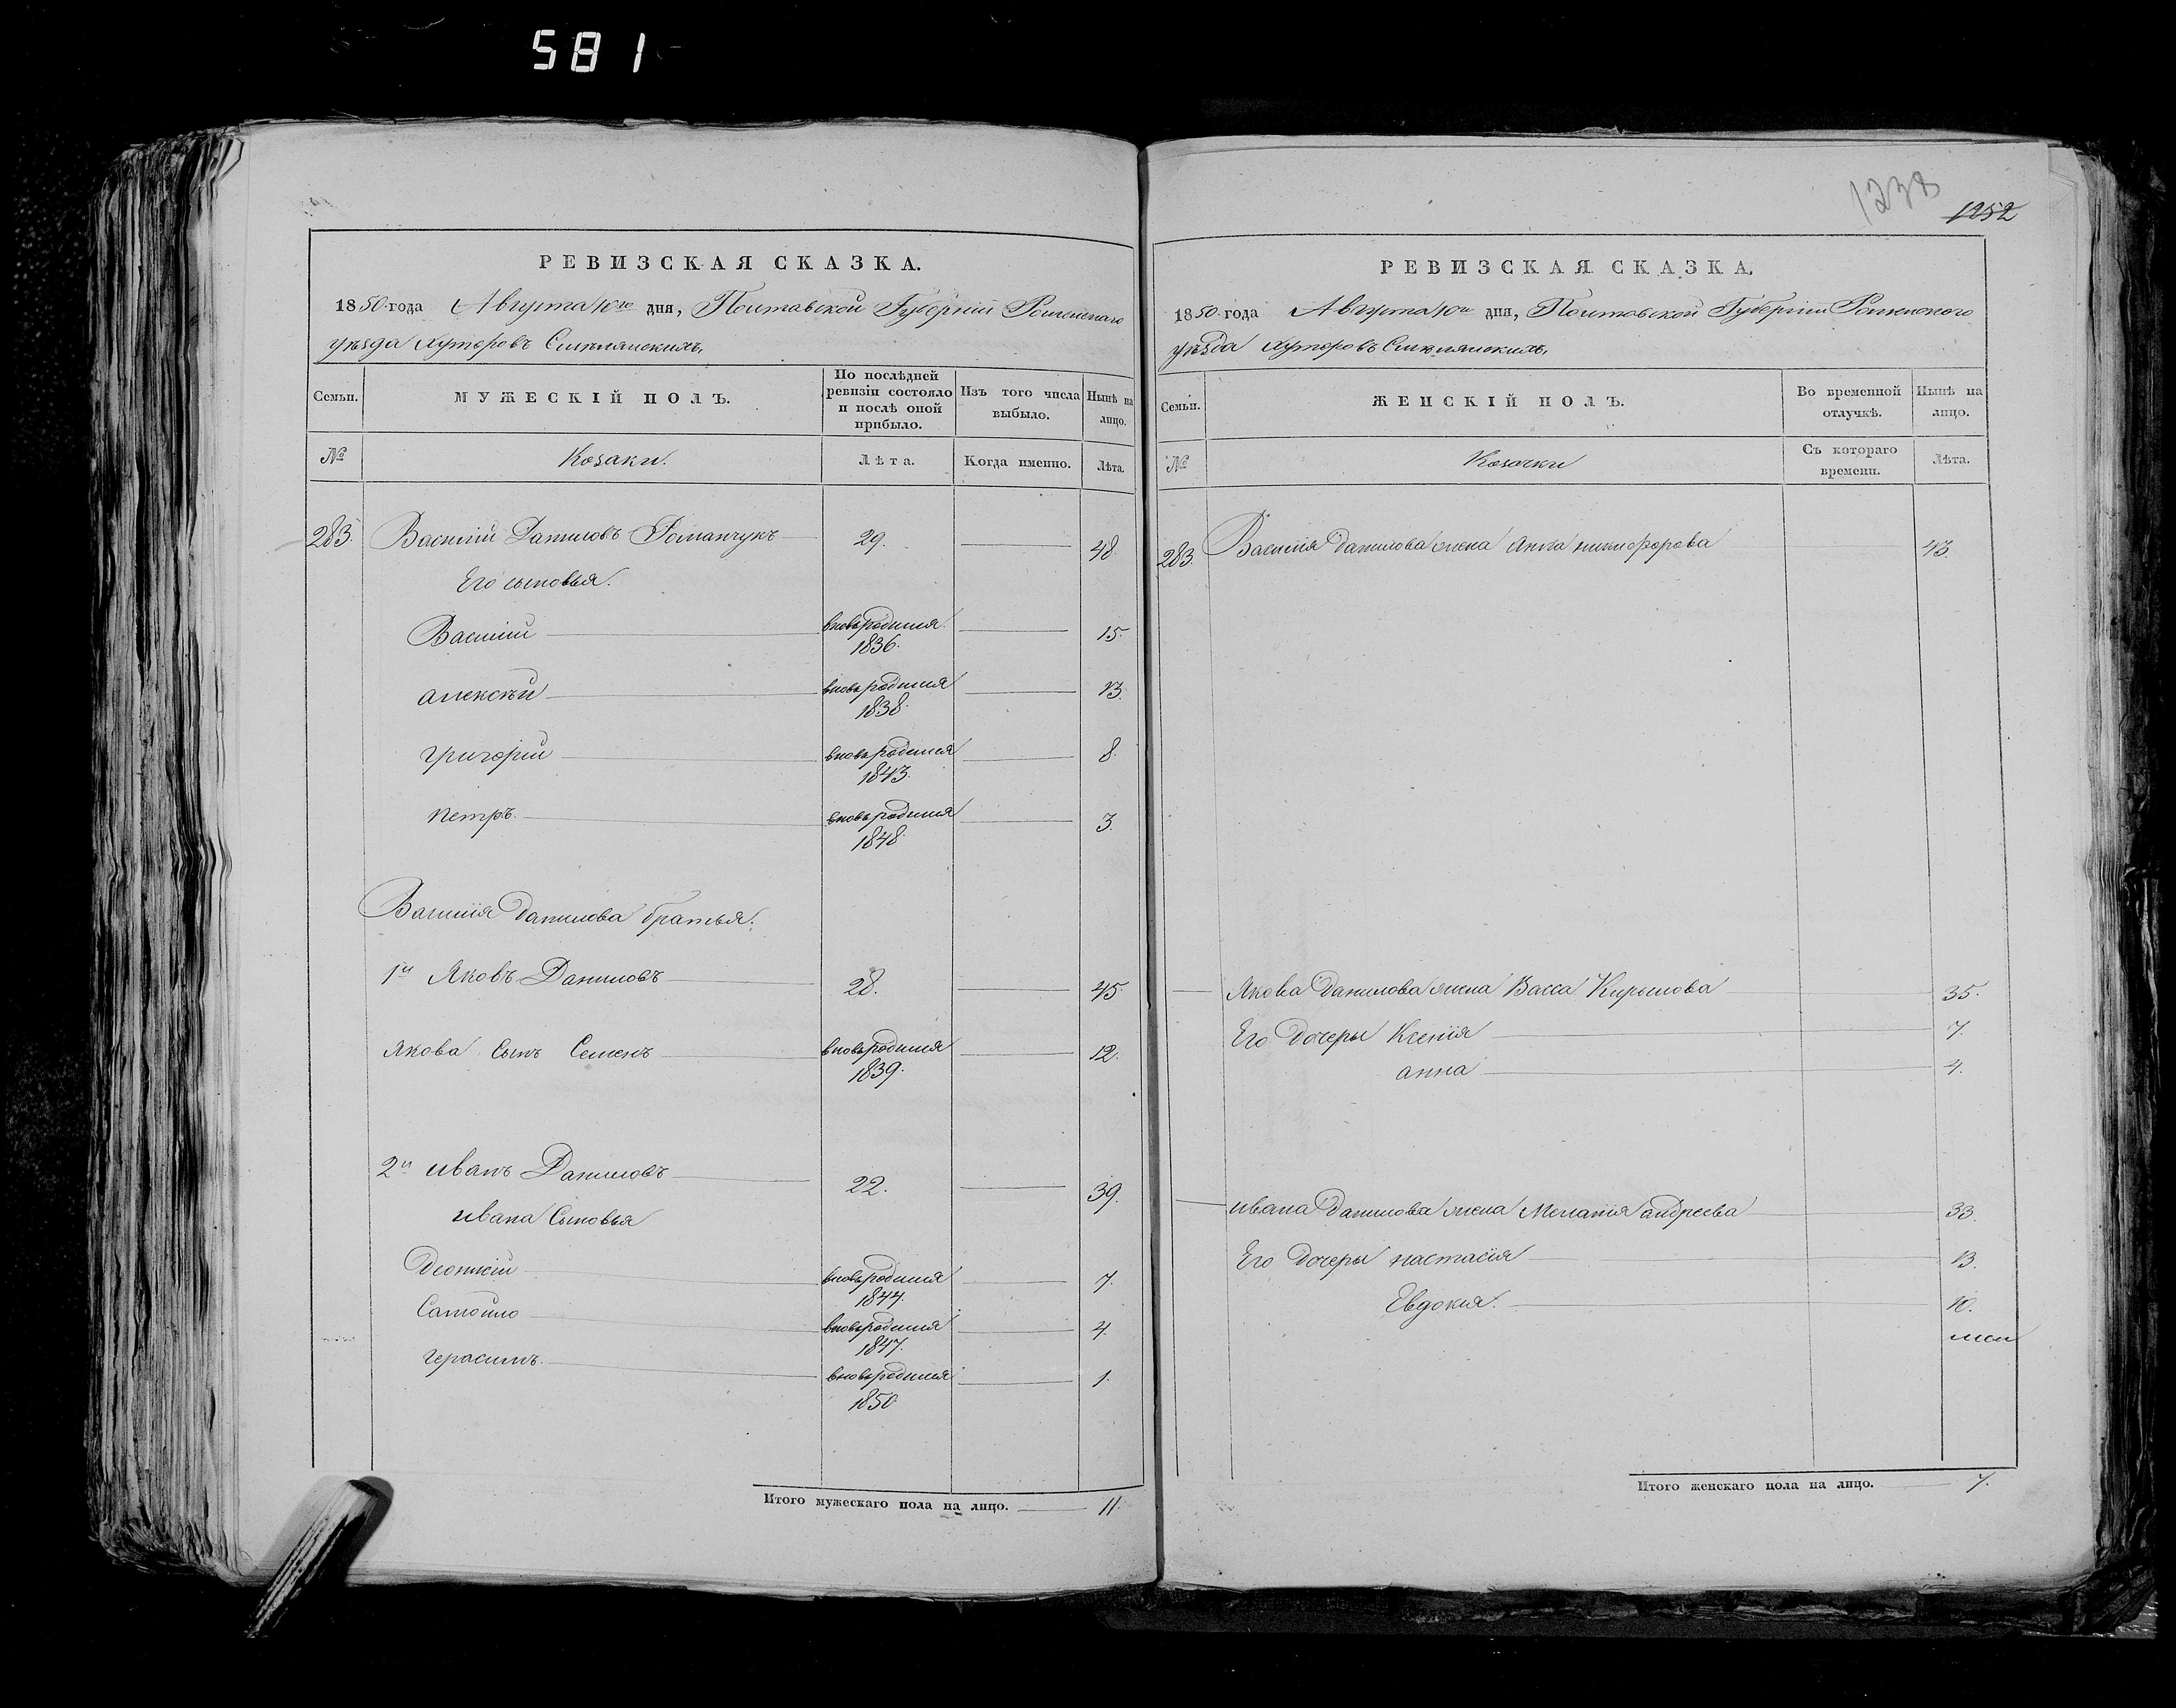 581
РЕВИЗСКАЯ СКАЗКА.
1850 года Августа 10го дня, Полтавской Губернiи Роменскаго
уѣзда Хуторовъ Смѣлянскихъ,
Семьи.
МУЖЕСКІЙ ПОЛЪ.
По послѣдней ревизіи состояло и послѣ оной прибыло.
Изъ того числа выбыло.
Нынѣ на лицо.
№
Козаки.
Лѣта.
Когда именно.
Лѣта.
283. Василій Даниловъ Романчукъ 29. 48
Его сыновья.
Василій вновь родился 1836. 15.
Алексѣй вновь родился 1838. 13.
Григорій вновь родился 1843. 8.
Петръ вновь родился 1848. 3.
Василія Данилова братья.
1й Яковъ Даниловъ 28. 45
Якова Сынъ Семенъ вновь родился 1839. 12.
2й Иванъ Даниловъ 22. 39.
Ивана Сыновья
Леонтій вновь родился 1844. 7.
Самойло вновь родился 1847. 4.
Герасимъ вновь родился 1850 1.
Итого мужескаго пола на лицо. 11.
1238
1252
РЕВИЗСКАЯ СКАЗКА.
1850 года Августа 10го дня, Полтавской Губернiи Роменского
уѣзда Хуторовъ Смѣлянскихъ,
Семьи.
ЖЕНСКІЙ ПОЛЪ.
Во временной отлучкѣ.
Нынѣ на лицо.
№
Козачки
Съ котораго времени.
Лѣта.
283. Василія Данилова жена Анна Никифорова 43
Якова Данилова жена Васса Кирилова 35.
Его Дочеры Ксенія 7.
Анна 4.
Ивана Данилова жена Меланія Андреева 33.
Его Дочеры Настасія 13.
Евдокія. 10.
Итого женскаго пола на лицо. 7.